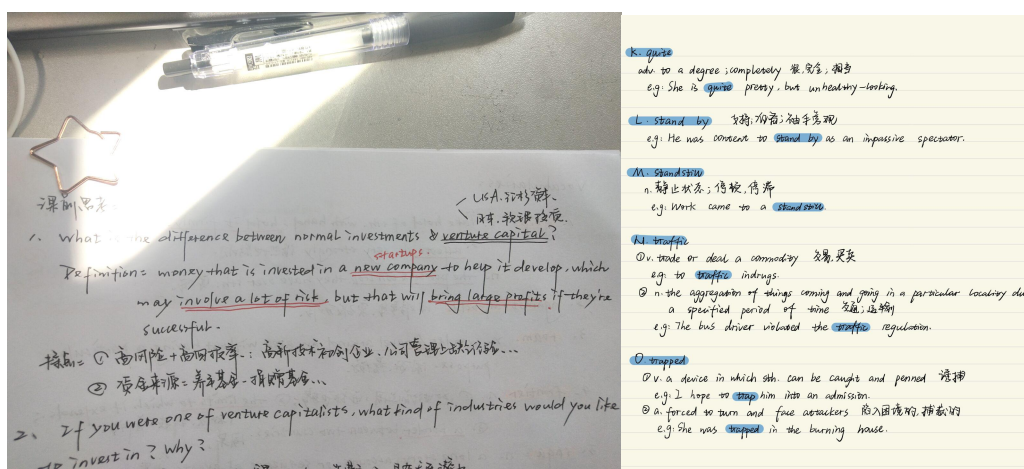 课前思考:
USA.红杉资本.
日本.软银投资.
1. What is the difference between normal investments & venture capital?
startups.
Definition: money that is invested in a new company to help it develop, which
may involve a lot of risk, but that will bring large profits if they're
successful.
特点: ① 高风险+高回报率: 高新技术初创企业, 公司管理上缺经验...
② 资金来源: 养老基金、捐赠基金...
2. If you were one of venture capitalists, what kind of industries would you like
to invest in? Why?
K. quite
adv. to a degree; completely 很,完全;相当
e.g: She is quite pretty, but unhealthy-looking.
L. stand by 支持;袖手旁观
e.g: He was content to stand by as an impassive spectator.
M. standstill
n. 静止状态;停顿,停滞
e.g: Work came to a standstill.
N. traffic
①v. trade or deal a commodity 交易,买卖
e.g. to traffic in drugs.
② n. the aggregation of things coming and going in a particular locality du
a specified period of time 交通;运输
e.g: The bus driver violated the traffic regulation.
O. trapped
①v. a device in which sth. can be caught and penned 诱捕
e.g: I hope to trap him into an admission.
② a. forced to turn and face attackers 陷入困境的,捕获的
e.g: She was trapped in the burning house.